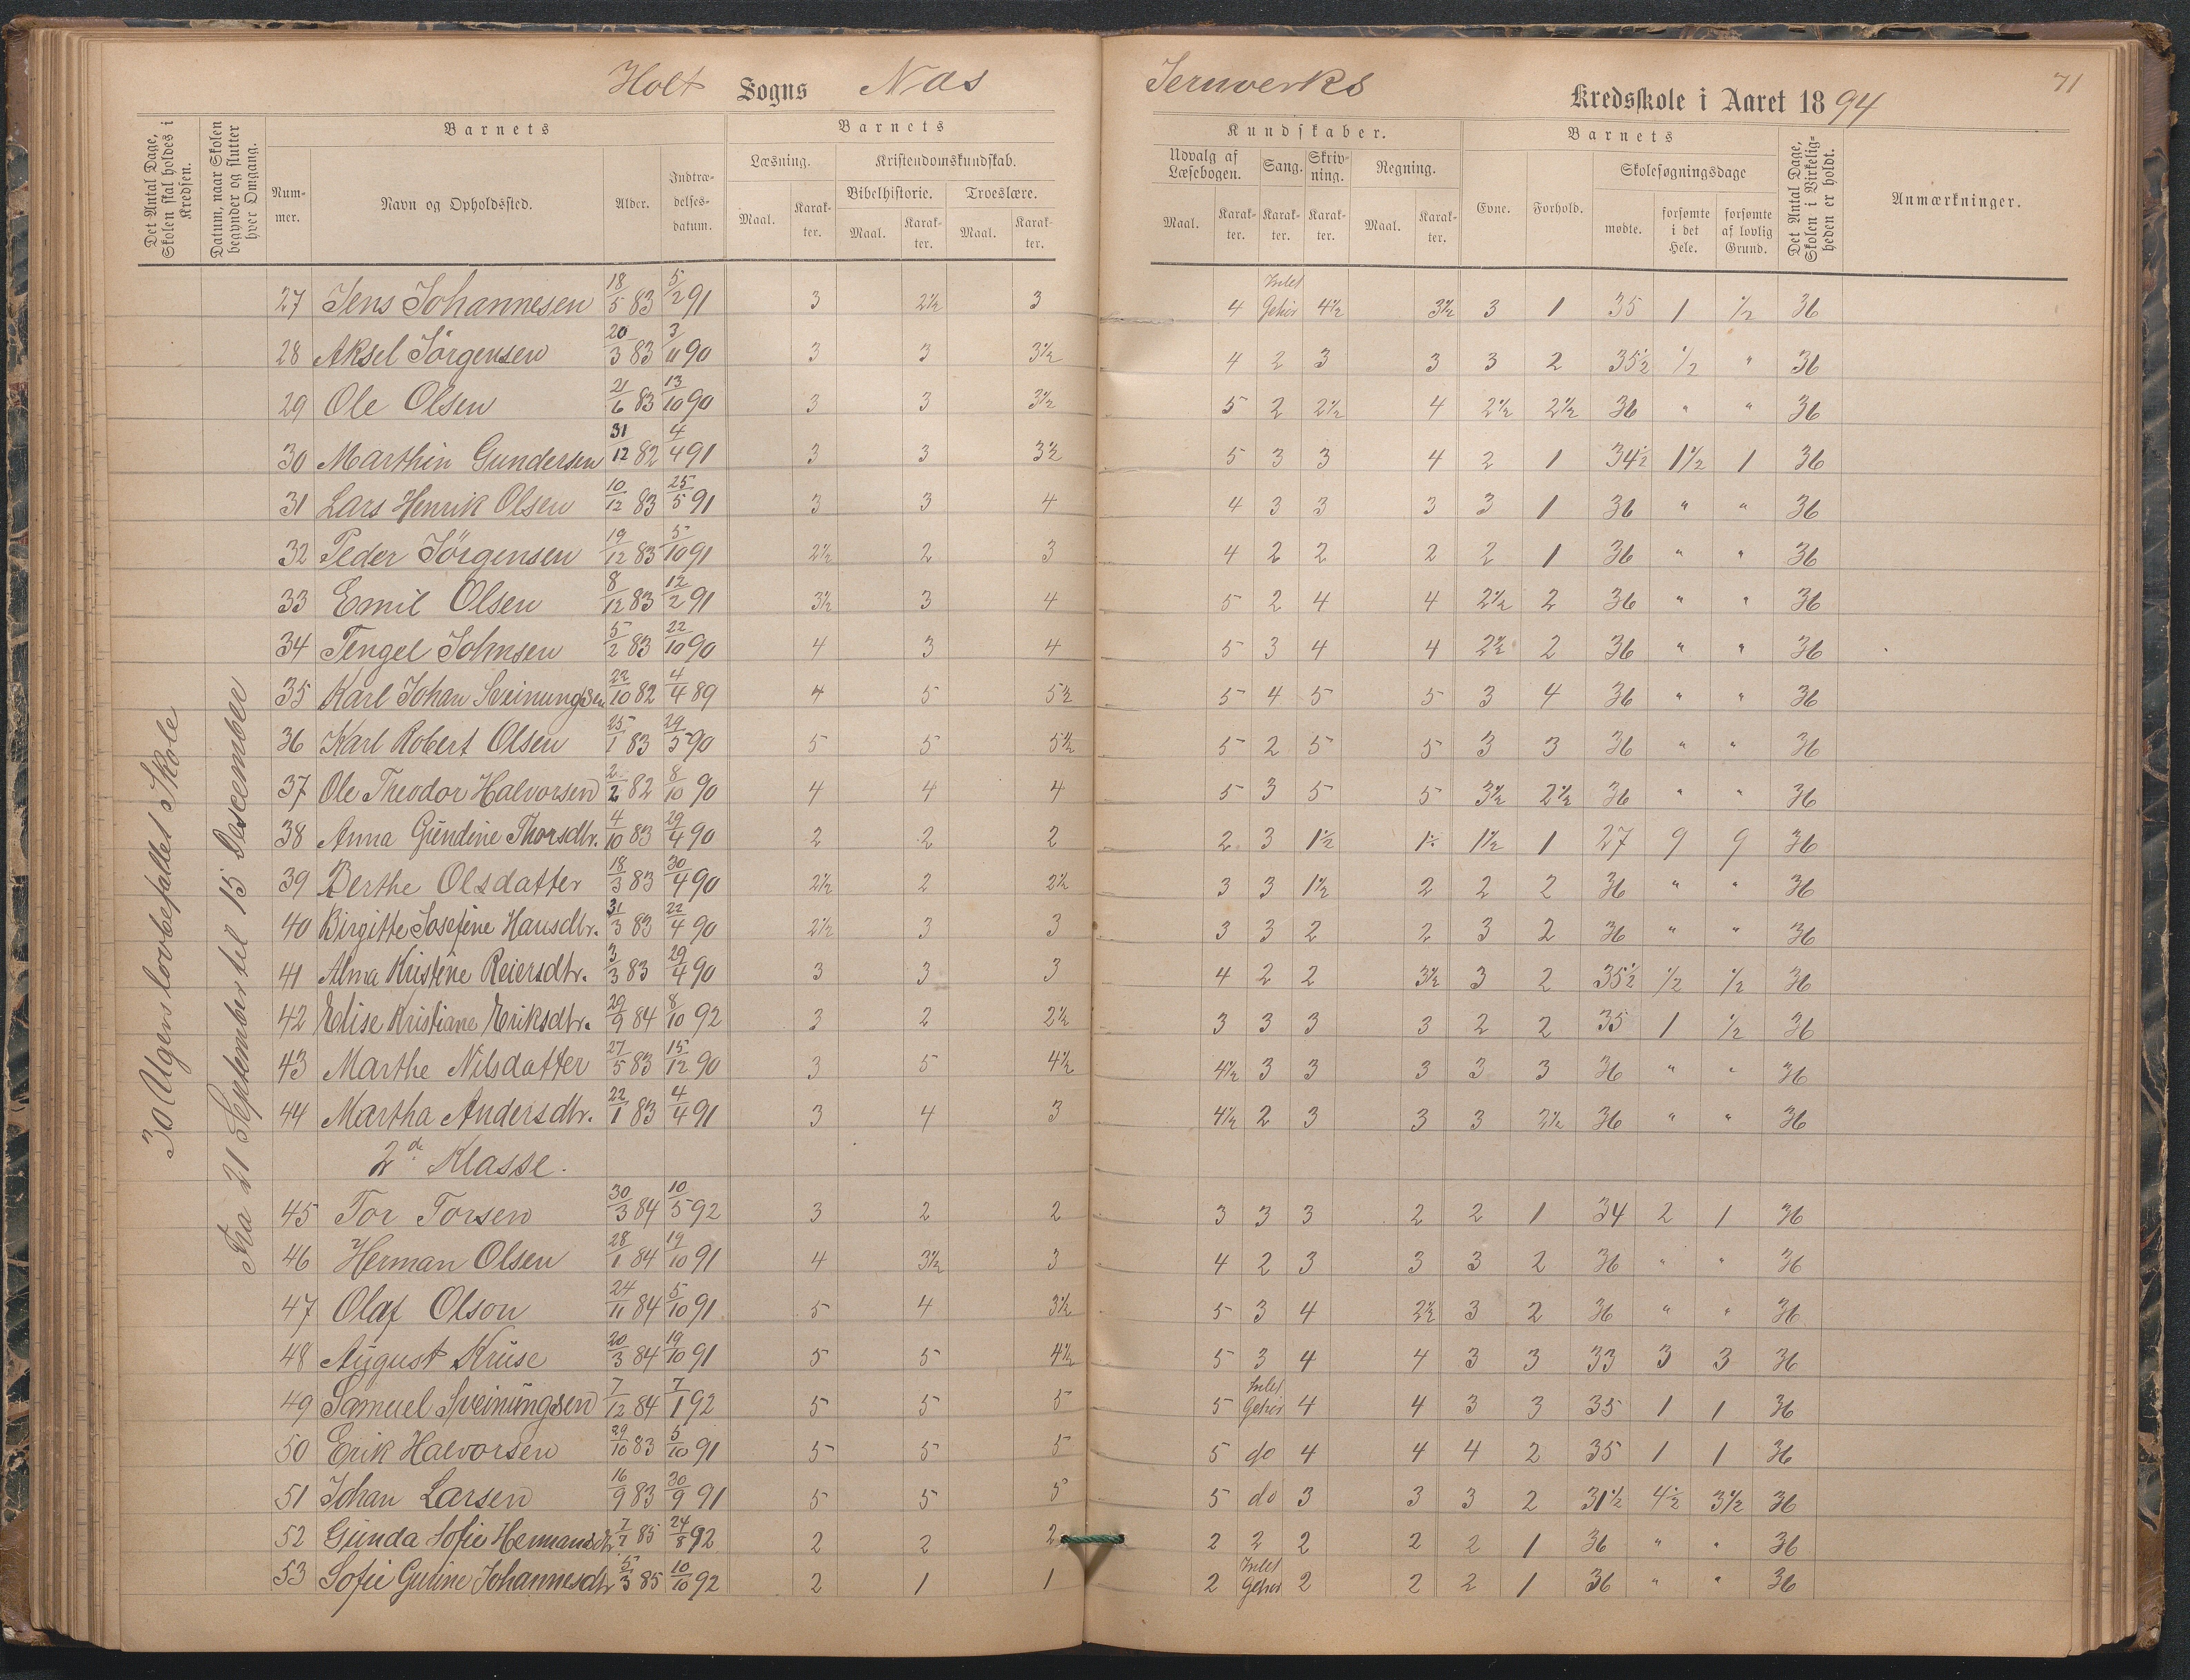 Holt Sogns Næs Jernverks Kredsskole i Aaret 1894
71
Det Antal Dage, Skolen skal holdes i Kredsen.
Datum, naar Skolen begynder og slutter hver Omgang.
Barnets
Nummer. Navn og Opholdssted. Alder. Indtrædelsesdatum.
Barnets Kundskaber.
Læsning. Kristendomskundskab. Udvalg af Læsebogen. Sang. Skrivning. Regning.
Bibelhistorie. Troeslære.
Maal. Karakter. Maal. Karakter. Maal. Karakter. Maal. Karakter. Karakter. Karakter. Maal. Karakter.
Barnets
Evne. Forhold. Skolesøgningsdage
mødte. forsømte i det Hele. forsømte af lovlig Grund.
Det Antal Dage, Skolen i Virkeligheden er holdt.
Anmærkninger.
30 Ugers lovbefallet Skole
Fra 21 September til 15 Descember
27 Jens Johannesen 18/5 83 5/2 91 3 2½ 3 4 Intet Gehør 4½ 3½ 3 1 35 1 ½ 36
28 Aksel Jörgensen 20/3 83 3/11 90 3 3 3½ 4 2 3 3 3 2 35½ ½ " 36
29 Ole Olsen 21/6 83 13/10 90 3 3 3½ 5 2 2½ 4 2½ 2½ 36 " " 36
30 Marthin Gundersen 31/12 82 4/4 91 3 3 3½ 5 3 3 4 2 1 34½ 1½ 1 36
31 Lars Henrik Olsen 10/12 83 25/5 91 3 3 4 4 3 3 3 3 1 36 " " 36
32 Peder Jörgensen 19/12 83 5/10 91 2½ 2 3 4 2 2 2 2 1 36 " " 36
33 Emil Olsen 8/12 83 12/2 91 3½ 3 4 5 2 4 4 2½ 2 36 " " 36
34 Tengel Johnsen 5/2 83 22/10 90 4 3 4 5 3 4 4 2½ 2 36 " " 36
35 Karl Johan Sveinungsen 22/10 82 4/4 89 4 5 5½ 5 4 5 5 3 4 36 " " 36
36 Karl Robert Olsen 25/1 83 29/5 90 5 5 5½ 5 2 5 5 3 3 36 " " 36
37 Ole Theodor Halvorsen 2/2 82 8/10 90 4 4 4 5 3 5 5 3½ 2½ 36 " " 36
38 Anna Gündine Thorsdtr. 4/10 83 29/4 90 2 2 2 2 3 1½ 1½ 1½ 1 27 9 9 36
39 Berthe Olsdatter 18/3 83 30/4 90 2½ 2 2½ 3 3 1½ 2 2 2 36 " " 36
40 Birgitte Josefine Hansdtr. 31/3 83 22/4 90 2½ 3 3 3 3 2 2 3 2 36 " " 36
41 Alma Kristine Reiersdtr. 3/3 83 29/4 90 3 3 3 4 2 2 3½ 3 2 35½ ½ ½ 36
42 Elise Kristiane Eriksdtr. 29/9 84 8/10 92 3 2 2½ 3 3 3 3 2 2 35 1 ½ 36
43 Marthe Nilsdatter 27/5 83 15/12 90 3 5 4½ 4½ 3 3 3 3 3 36 " " 36
44 Martha Andersdtr. 22/1 83 4/4 91 3 4 3 4½ 2 3 3 3 2½ 36 " " 36
2d Klasse.
45 Tor Torsen 30/3 84 10/5 92 3 2 2 3 3 3 2 2 1 34 2 1 36
46 Herman Olsen 28/1 84 19/10 91 4 3½ 3 4 2 3 3 3 2 36 " " 36
47 Olaf Olson 24/11 84 5/10 91 5 4 3½ 5 3 4 2½ 3 2 36 " " 36
48 August Krüse 20/3 84 19/10 91 5 5 4½ 5 3 4 4 3 3 33 3 3 36
49 Samuel Sveinüngsen 7/12 84 7/1 92 5 5 5 5 Intet Gehör 4 4 3 3 35 1 1 36
50 Erik Halvorsen 29/10 83 5/10 91 5 5 5 5 do 4 4 4 2 35 1 1 36
51 Johan Larsen 16/9 83 30/9 91 5 5 5 5 do 3 3 3 2 31½ 4½ 3½ 36
52 Günda Sofie Hermansdtr 7/7 85 24/8 92 2 2 2 2 2 2 2 2 1 36 " " 36
53 Sofie Guline Johannesdtr 5/3 85 10/10 92 2 1 1 2 Intet Gehør 2 2 2 1 36 " " 36